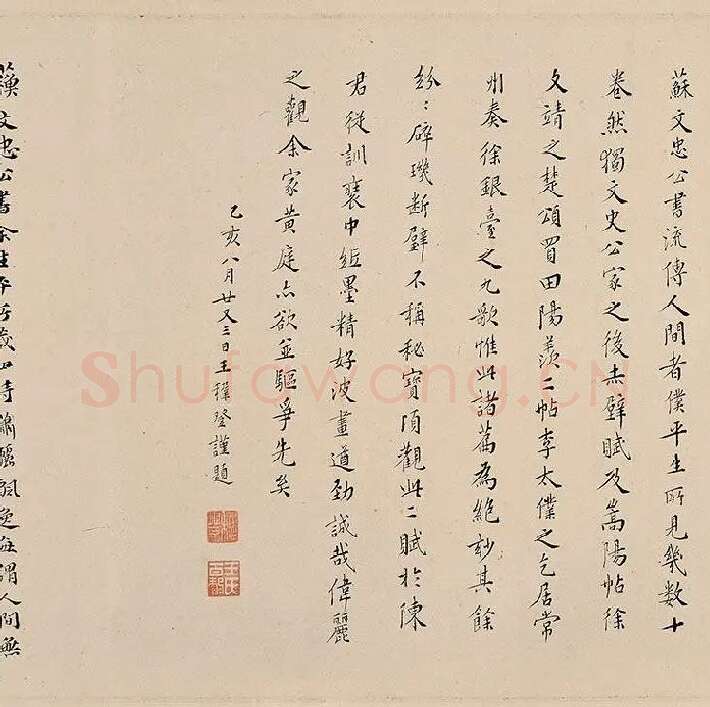 蘇文忠公書流傳人間者僕平生所見幾數十
卷然獨文史公家之後赤壁賦及嵩陽帖徐
文靖之楚頌買田陽羨二帖李太僕之乞居常
州奏徐銀臺之九歌惟此諸篇為絕妙其餘
紛〻碎璣断璧不稱秘寶頃觀此二賦於陳
君從訓裘中紙墨精好波畫遒勁誠哉偉麗
之觀余家黄庭亦欲並驅爭先矣
乙亥八月廿又三日王穉登謹題
王氏百穀
蘇文忠公書余生平所藏四詩瀟灑飄逸無謂人間無
Shufawang.CN